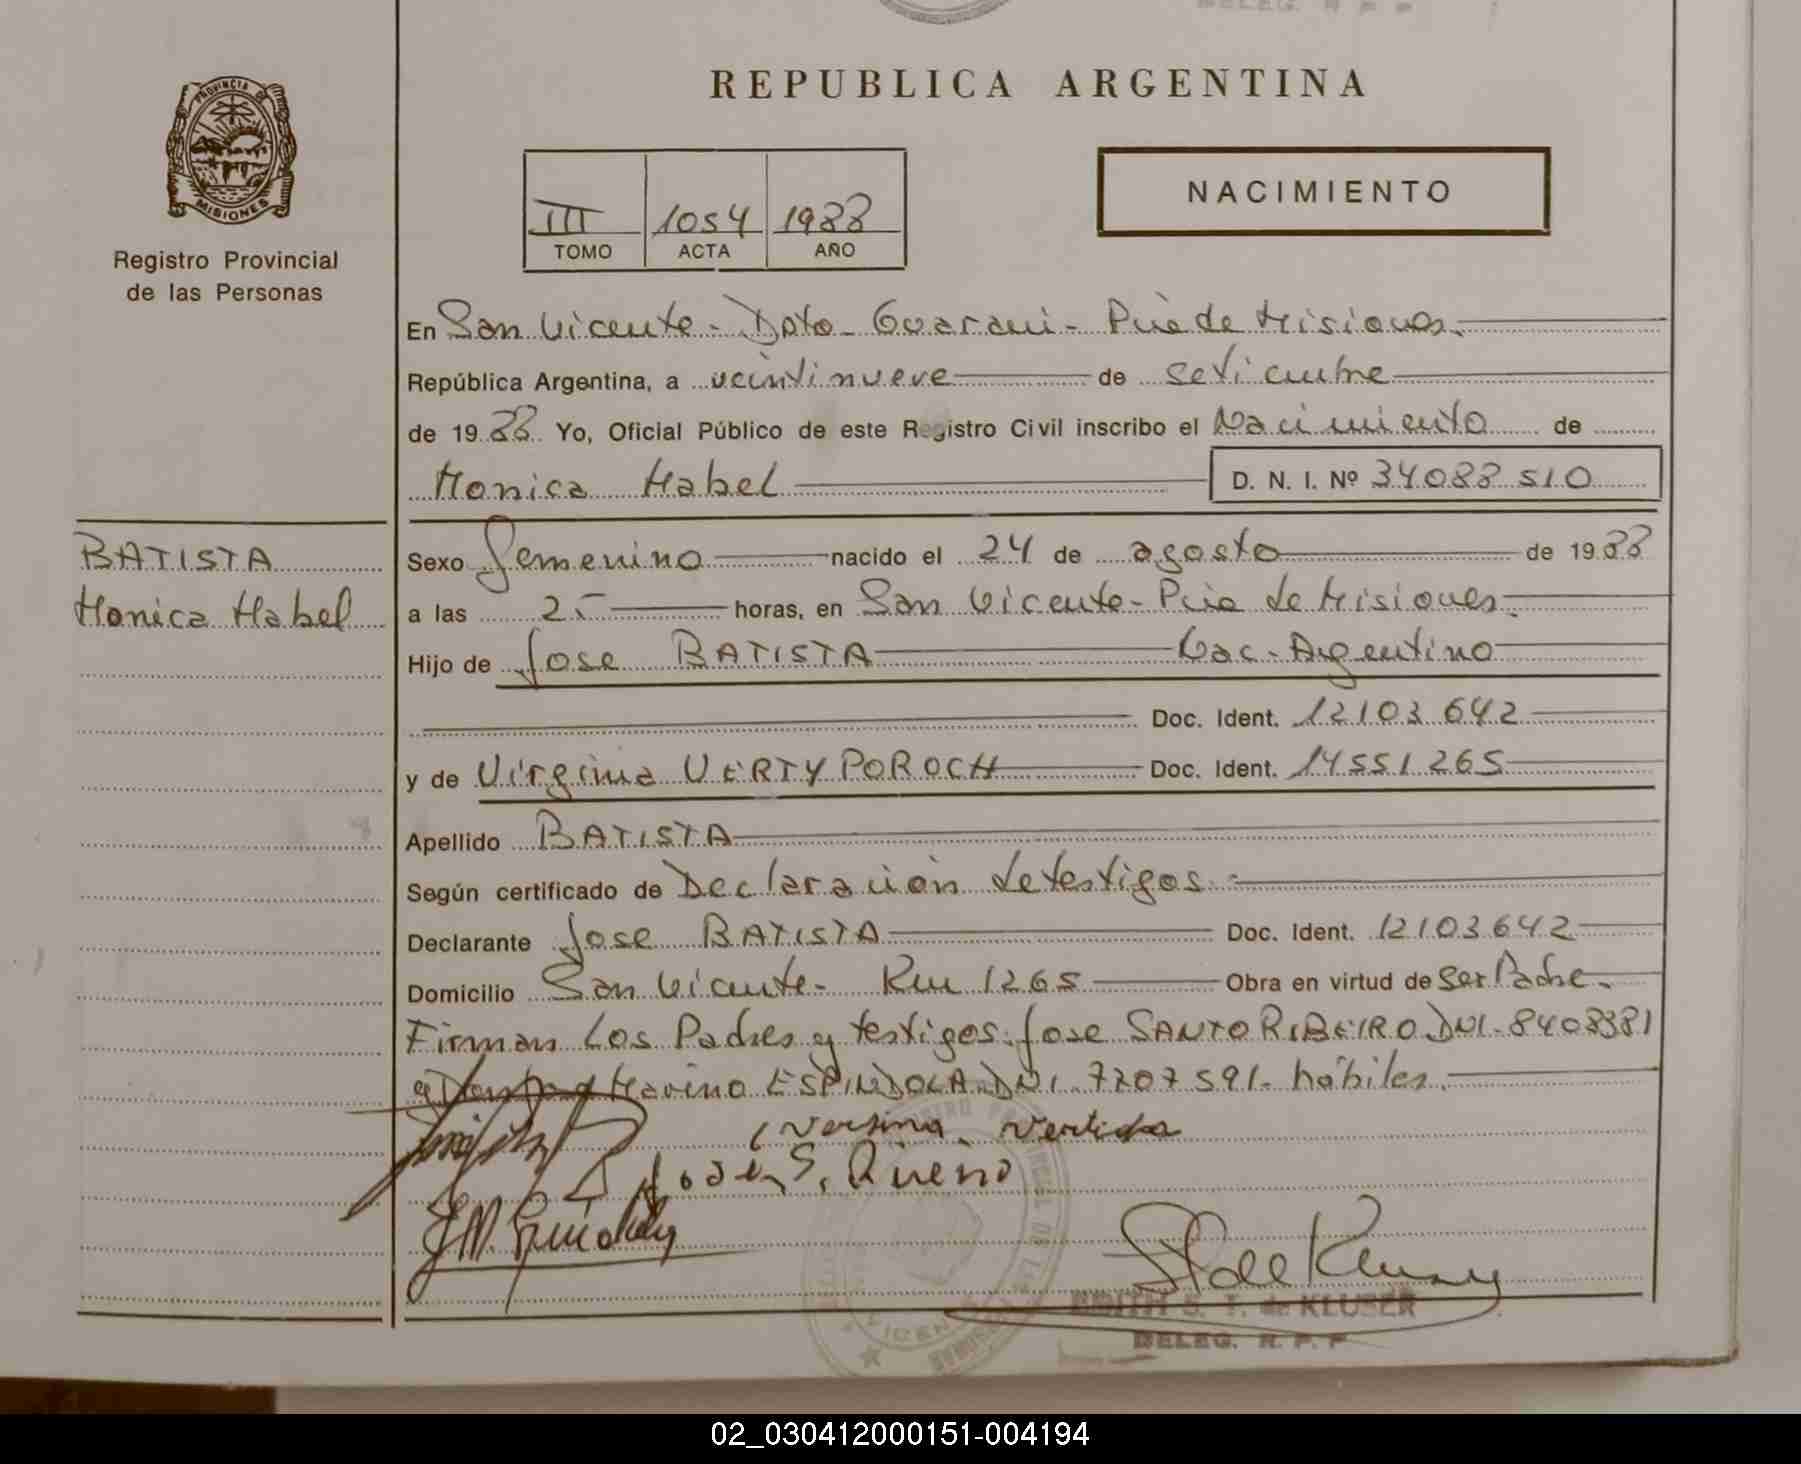 BELEG. R P P
REPUBLICA ARGENTINA
PROVINCIA DE
MISIONES
Registro Provincial
de las Personas
III 1054 1988
TOMO ACTA AÑO
NACIMIENTO
En San Vicente - Dpto - Guarani - Pcia de Misiones.
República Argentina, a veintinueve de setiembre
de 1988 Yo, Oficial Público de este Registro Civil inscribo el Nacimiento de
Monica Mabel D. N. I. Nº 34088510
BATISTA
Monica Mabel
Sexo Femenino nacido el 24 de agosto de 1988
a las 2.- horas, en San Vicente - Pcia de Misiones.
Hijo de Jose BATISTA Nac. Argentino
Doc. Ident. 12103642
y de Virginia VERTYPOROCH Doc. Ident. 14551265
Apellido BATISTA
Según certificado de Declaración de testigos.-
Declarante Jose BATISTA Doc. Ident. 12103642
Domicilio San Vicente - Km 1265 Obra en virtud de Ser Padre.
Firman Los Padres y testigos: Jose SANTO RIBEIRO DNI. 8408381
y Marino ESPINDOLA DNI 7207591- hábiles.
EDITH S. T. de KLUSER
DELEG. R. P. P
02_030412000151-004194